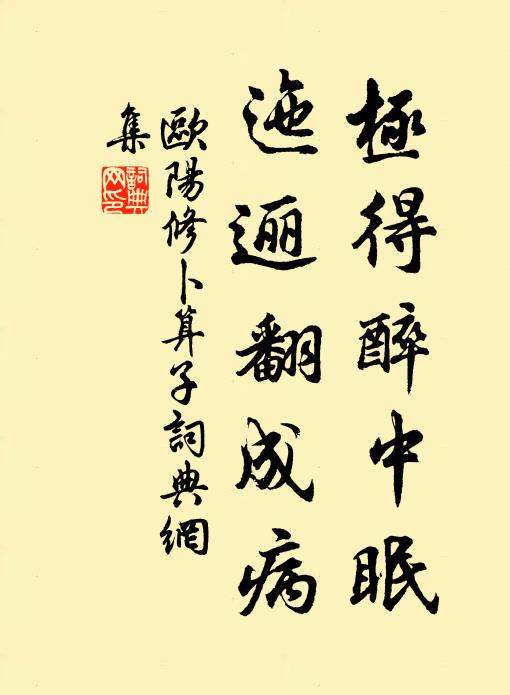 極得醉中眠
迤逦翻成病
歐陽修卜算子詞典網
集
詞典
网印